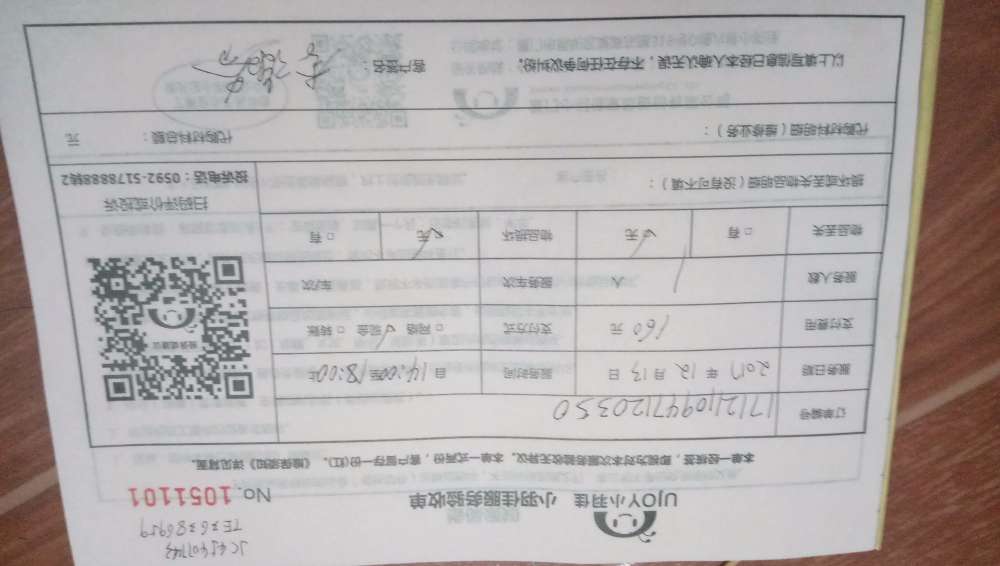 JC45407743
TE36386959
UJOY小羽佳 小羽佳服务验收单
No. 1051101
本单一经核签，即视为对本次服务验收无异议。本单一式两份，客户留存一份(红)。《维保须知》详见背面。
订单编号 17121109471203S0
服务日期 2017 年 12 月 13 日 服务时间 自 14:00 至 18:00 止
支付费用 160 元 支付方式 □ 网络 √ 现金 □ 转账
服务人数 1 人 服务车次 车/次
物品丢失 □ 有 √ 无 物品损坏 √ 无 □ 有
扫码评价或投诉
投诉电话：0592-5178888转2
损坏或丢失物品明细（没有可不填）：
代购材料明细（维修业务）： 代购材料总额： 元
以上填写信息已经本人确认无误，不存在任何争议纠纷。 客户签名：